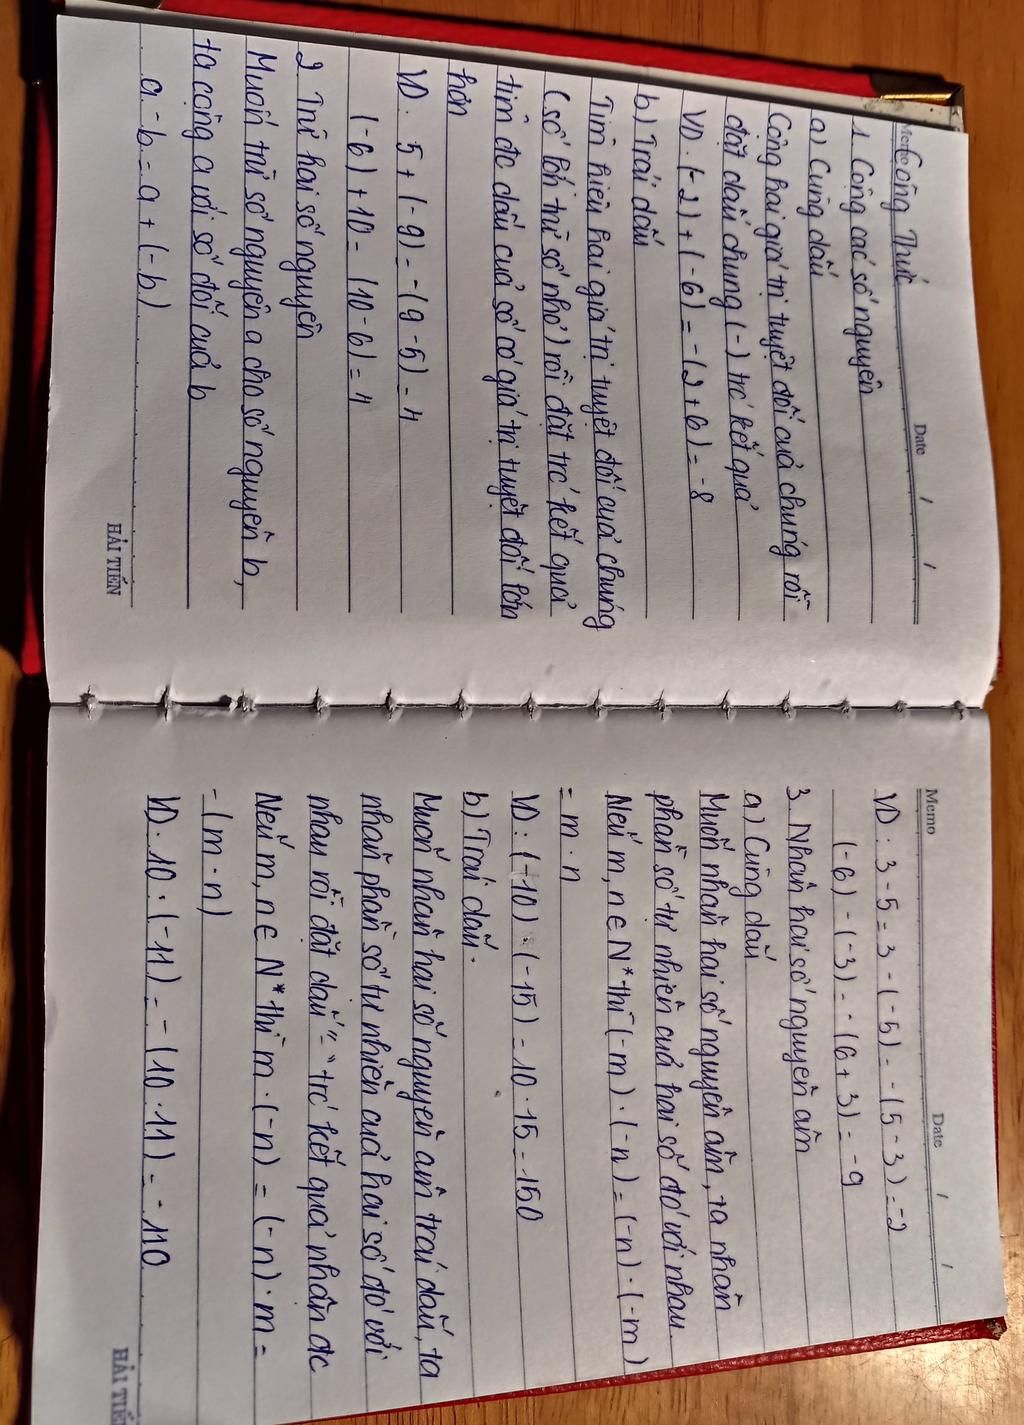 Memo
Công Thức
Date / /
1. Cộng các số nguyên
a) Cùng dấu
Cộng hai giá trị tuyệt đối của chúng rồi
đặt dấu chung (-) trc kết quả
VD: (-2) + (-6) = -(2+6) = -8
b) Trái dấu
Tìm hiệu hai giá trị tuyệt đối của chúng
(số lớn trừ số nhỏ) rồi đặt trc kết quả
tìm đc dấu của số có giá trị tuyệt đối lớn
hơn
VD: 5 + (-9) = -(9-5) = 4
(-6) + 10 = (10-6) = 4
2. Trừ hai số nguyên
Muốn trừ số nguyên a cho số nguyên b,
ta cộng a với số đối của b
a - b = a + (-b)
HẢI TIẾN
Memo
Date / /
VD: 3 - 5 = 3 - (-5) = -(5-3) = -2
(-6) - (-3) = -(6+3) = -9
3. Nhân hai số nguyên âm
a) Cùng dấu
Muốn nhân hai số nguyên âm, ta nhân
phần số tự nhiên của hai số đó với nhau.
Nếu m, n ∈ N* thì (-m) · (-n) = (-n) · (-m)
= m · n
VD: (-10) · (-15) = 10 · 15 = 150
b) Trái dấu.
Muốn nhân hai số nguyên âm trái dấu, ta
nhân phần số tự nhiên của hai số đó với
nhau rồi đặt dấu "-" trc kết quả nhận đc
Nếu m, n ∈ N* thì m · (-n) = (-n) · m =
-(m · n)
VD: 10 · (-11) = -(10 · 11) = -110
HẢI TIẾN